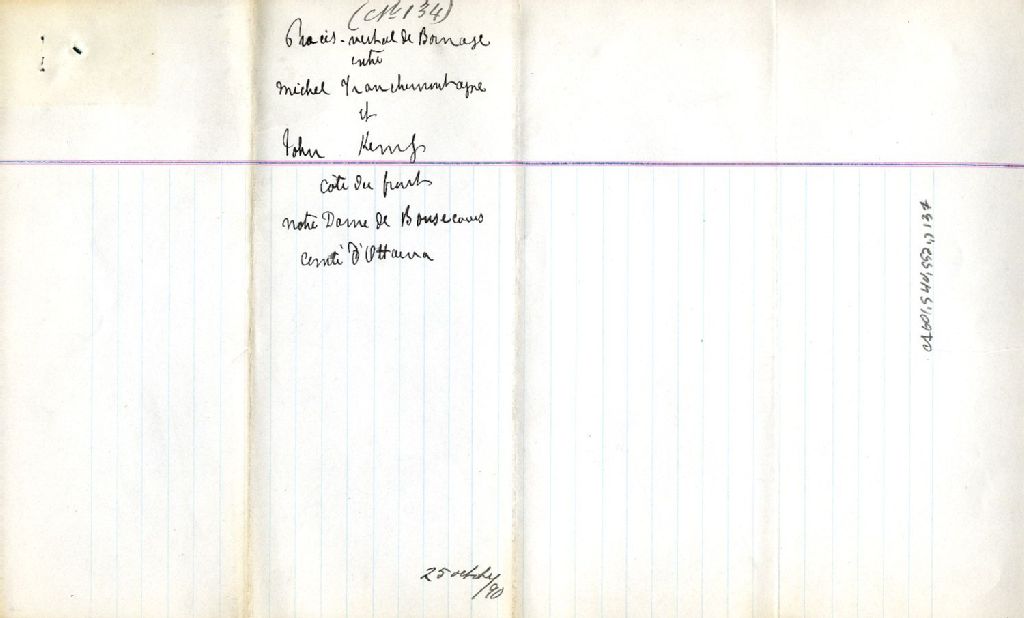 (No 134)
Procès-verbal de Bornage
entre
Michel Franchemontagne
et
John Kemp
côte du front
Notre Dame de Bonsecours
comté d'Ottawa
25 octobre/90
CA601,S40,SS2,D134